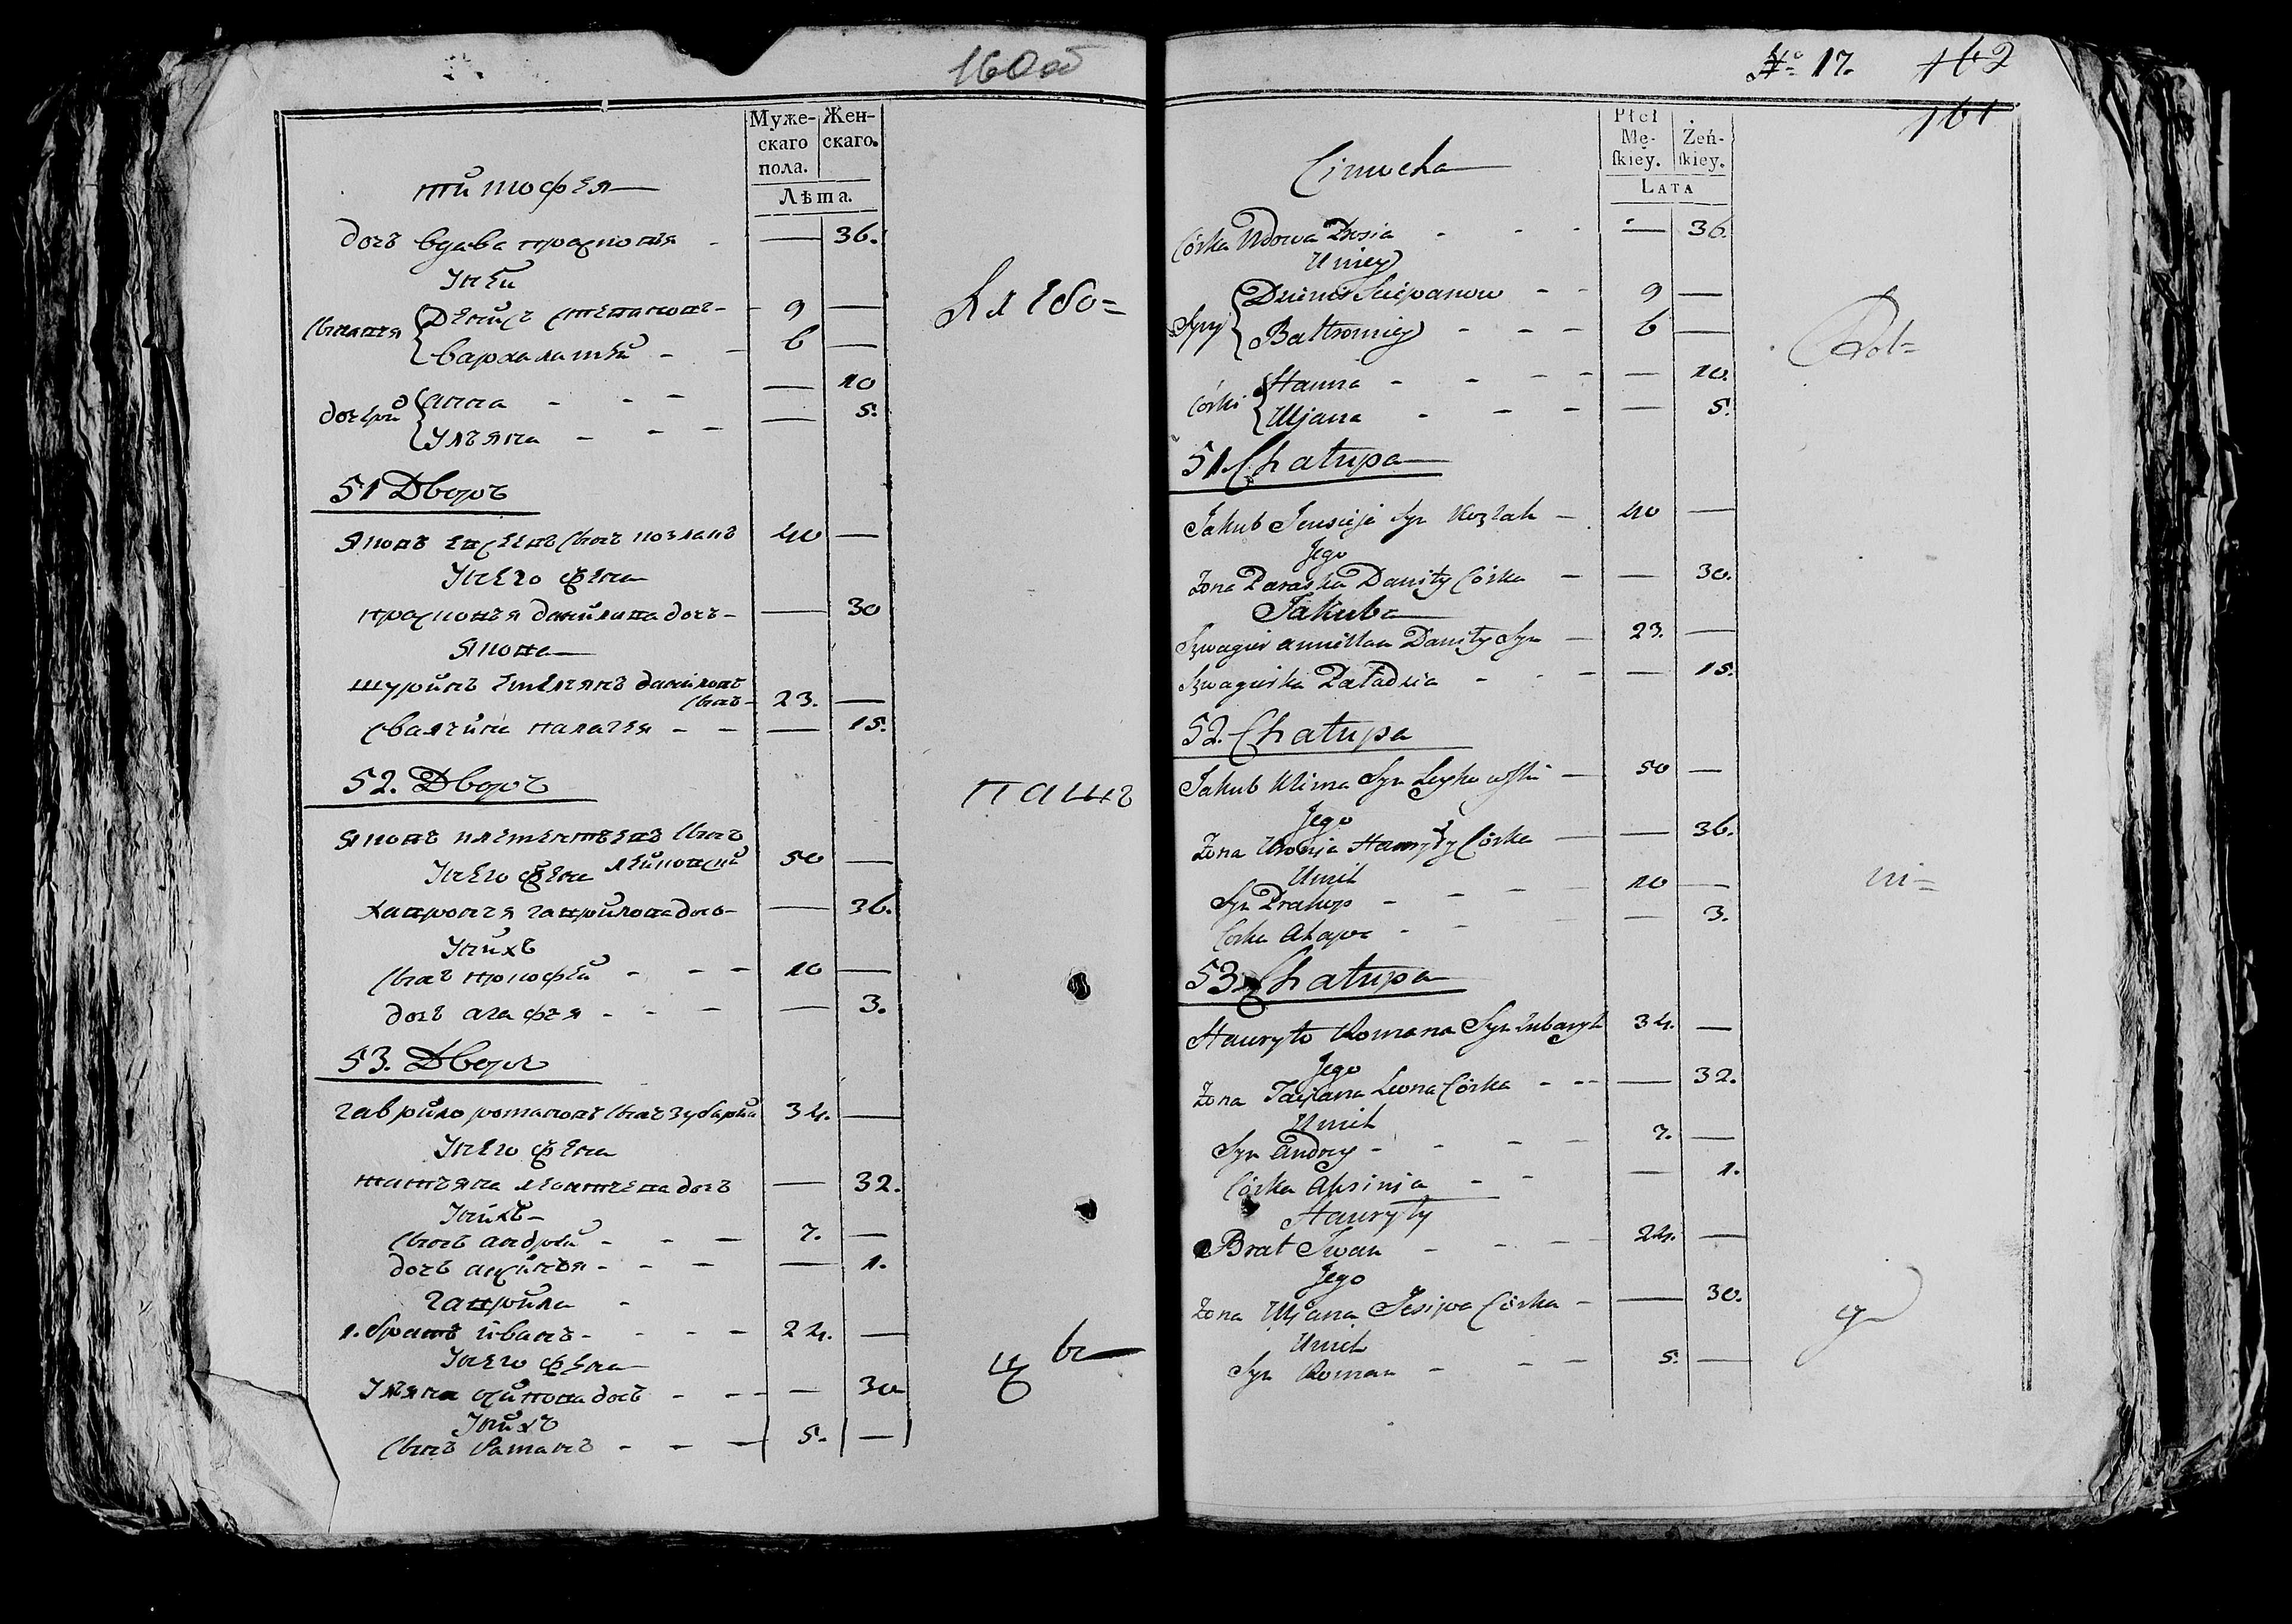 160об
Муже-
скаго
пола.
Жен-
скаго.
Лѣта.
тимофея
дочь вдова прасковья - — 36.
У ней
сыновья
Денисъ степановъ - 9 —
варфаламей - - 6 —
дочери
анна - - - — 10
Ульяна - - - — 5.
Хлебо=
51 Дворъ
Яковъ евсеевъ сынъ козлакъ 40 —
У него жена
прасковья данилова дочь - — 30
Якова
шуринъ емельянъ даниловъ
сынъ - 23. —
свалчина палагея - - — 15.
52. Дворъ
пашъ
Яковъ климентьевъ сынъ
лейковский 50 —
У него жена
хавронья гаврилова дочь - — 36.
У нихъ
сынъ прокофей - - - 10 —
дочь агафья - - - — 3.
53. Дворъ
гаврило романовъ сынъ зубарики 34. —
У него жена
татьяна леонтьева дочь — 32.
У нихъ -
сынъ андрей - - - 7. —
дочь аксинья - - - — 1.
гаврила -
1. братъ иванъ - - - - 24. —
У него жена
Ульяна осипова дочь - - - — 30
У нихъ
сынъ Раманъ - - - 5. —
№ 17.
162
161
Płci
Mę-
skiey.
Żeń-
skiey.
LATA
Cimocha
Córka Wdowa Prosia - - - — 36
U niey
Syny
Dzienis Sciepanow - - 9 —
Baltromiey - - - 6 —
Rol=
Córki
Hanna - - - - — 10.
Uljana - - - — 5.
51. Chałupa
Jakub Jeusieja Syn Kozłak - 40 —
Jego
Żona Paraska Daniły Córka - — 30.
Jakuba
Szwagier amillan Daniły Syn - 23. —
Szwagierka Paładzia - - - — 15.
52. Chałupa
Jakub Klima Syn Leykowski - 50 —
Jego
Żona Uronia Hauryły Córka - — 36.
U nich
Syn Prakop - - - - 10 —
Córka Ahapa - - — 3.
ni=
53. Chałupa
Hauryło Romana Syn Zubaryk 34. —
Jego
Żona Taciana Leona Córka - - - — 32.
U nich
Syn Andrey - - - - 7. —
Córka Aksinia - - — 1.
Hauryły
Brat Iwan - - - - 24. —
Jego
Żona Uljana Jesipa Córka - — 30.
U nich
Syn Roman - - - 5. —